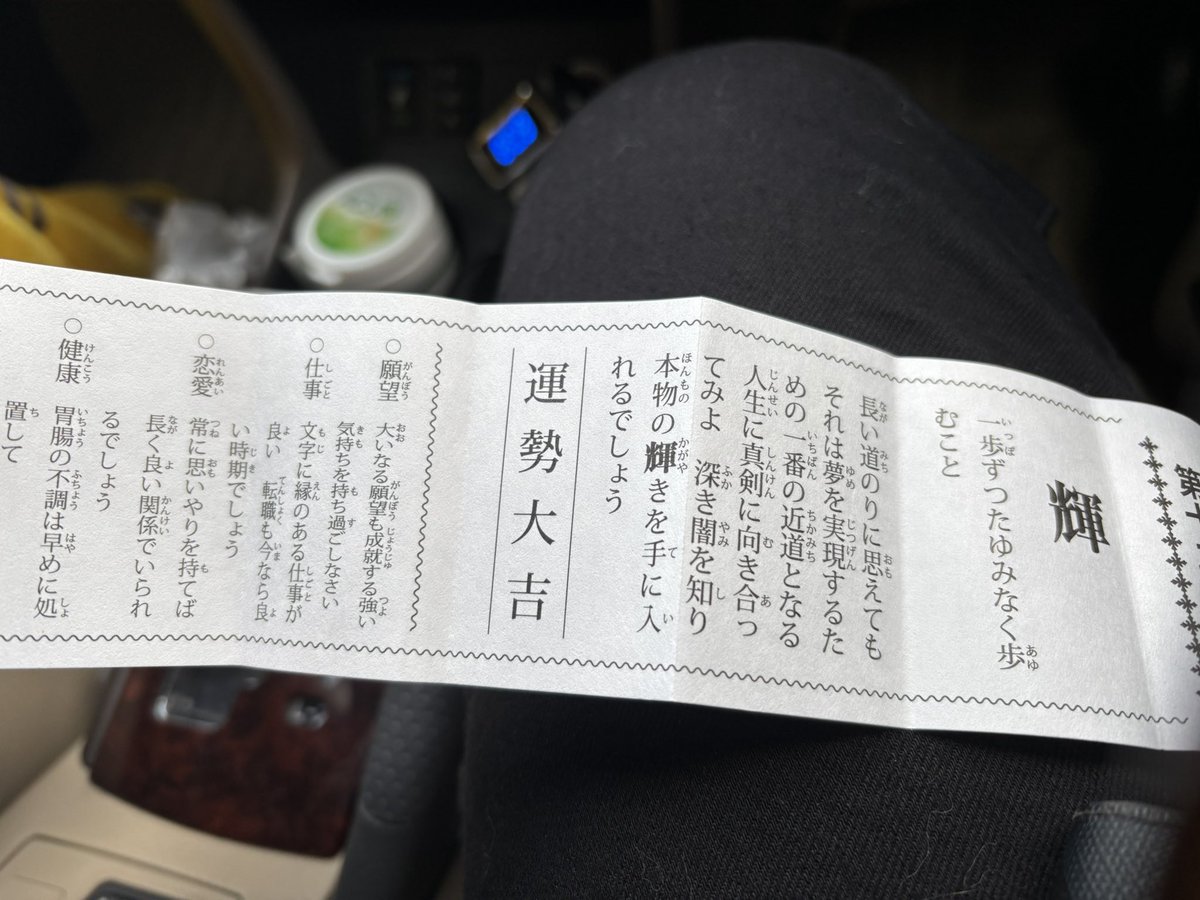 第十
輝
一歩ずつたゆみなく歩
むこと
長い道のりに思えても
それは夢を実現するた
めの一番の近道となる
人生に真剣に向き合っ
てみよ 深き闇を知り
本物の輝きを手に入
れるでしょう
運勢大吉
○願望 大いなる願望も成就する強い
気持ちを持ち過ごしなさい
○仕事 文字に縁のある仕事が
良い 転職も今なら良
い時期でしょう
○恋愛 常に思いやりを持てば
長く良い関係でいられ
るでしょう
○健康 胃腸の不調は早めに処
置して